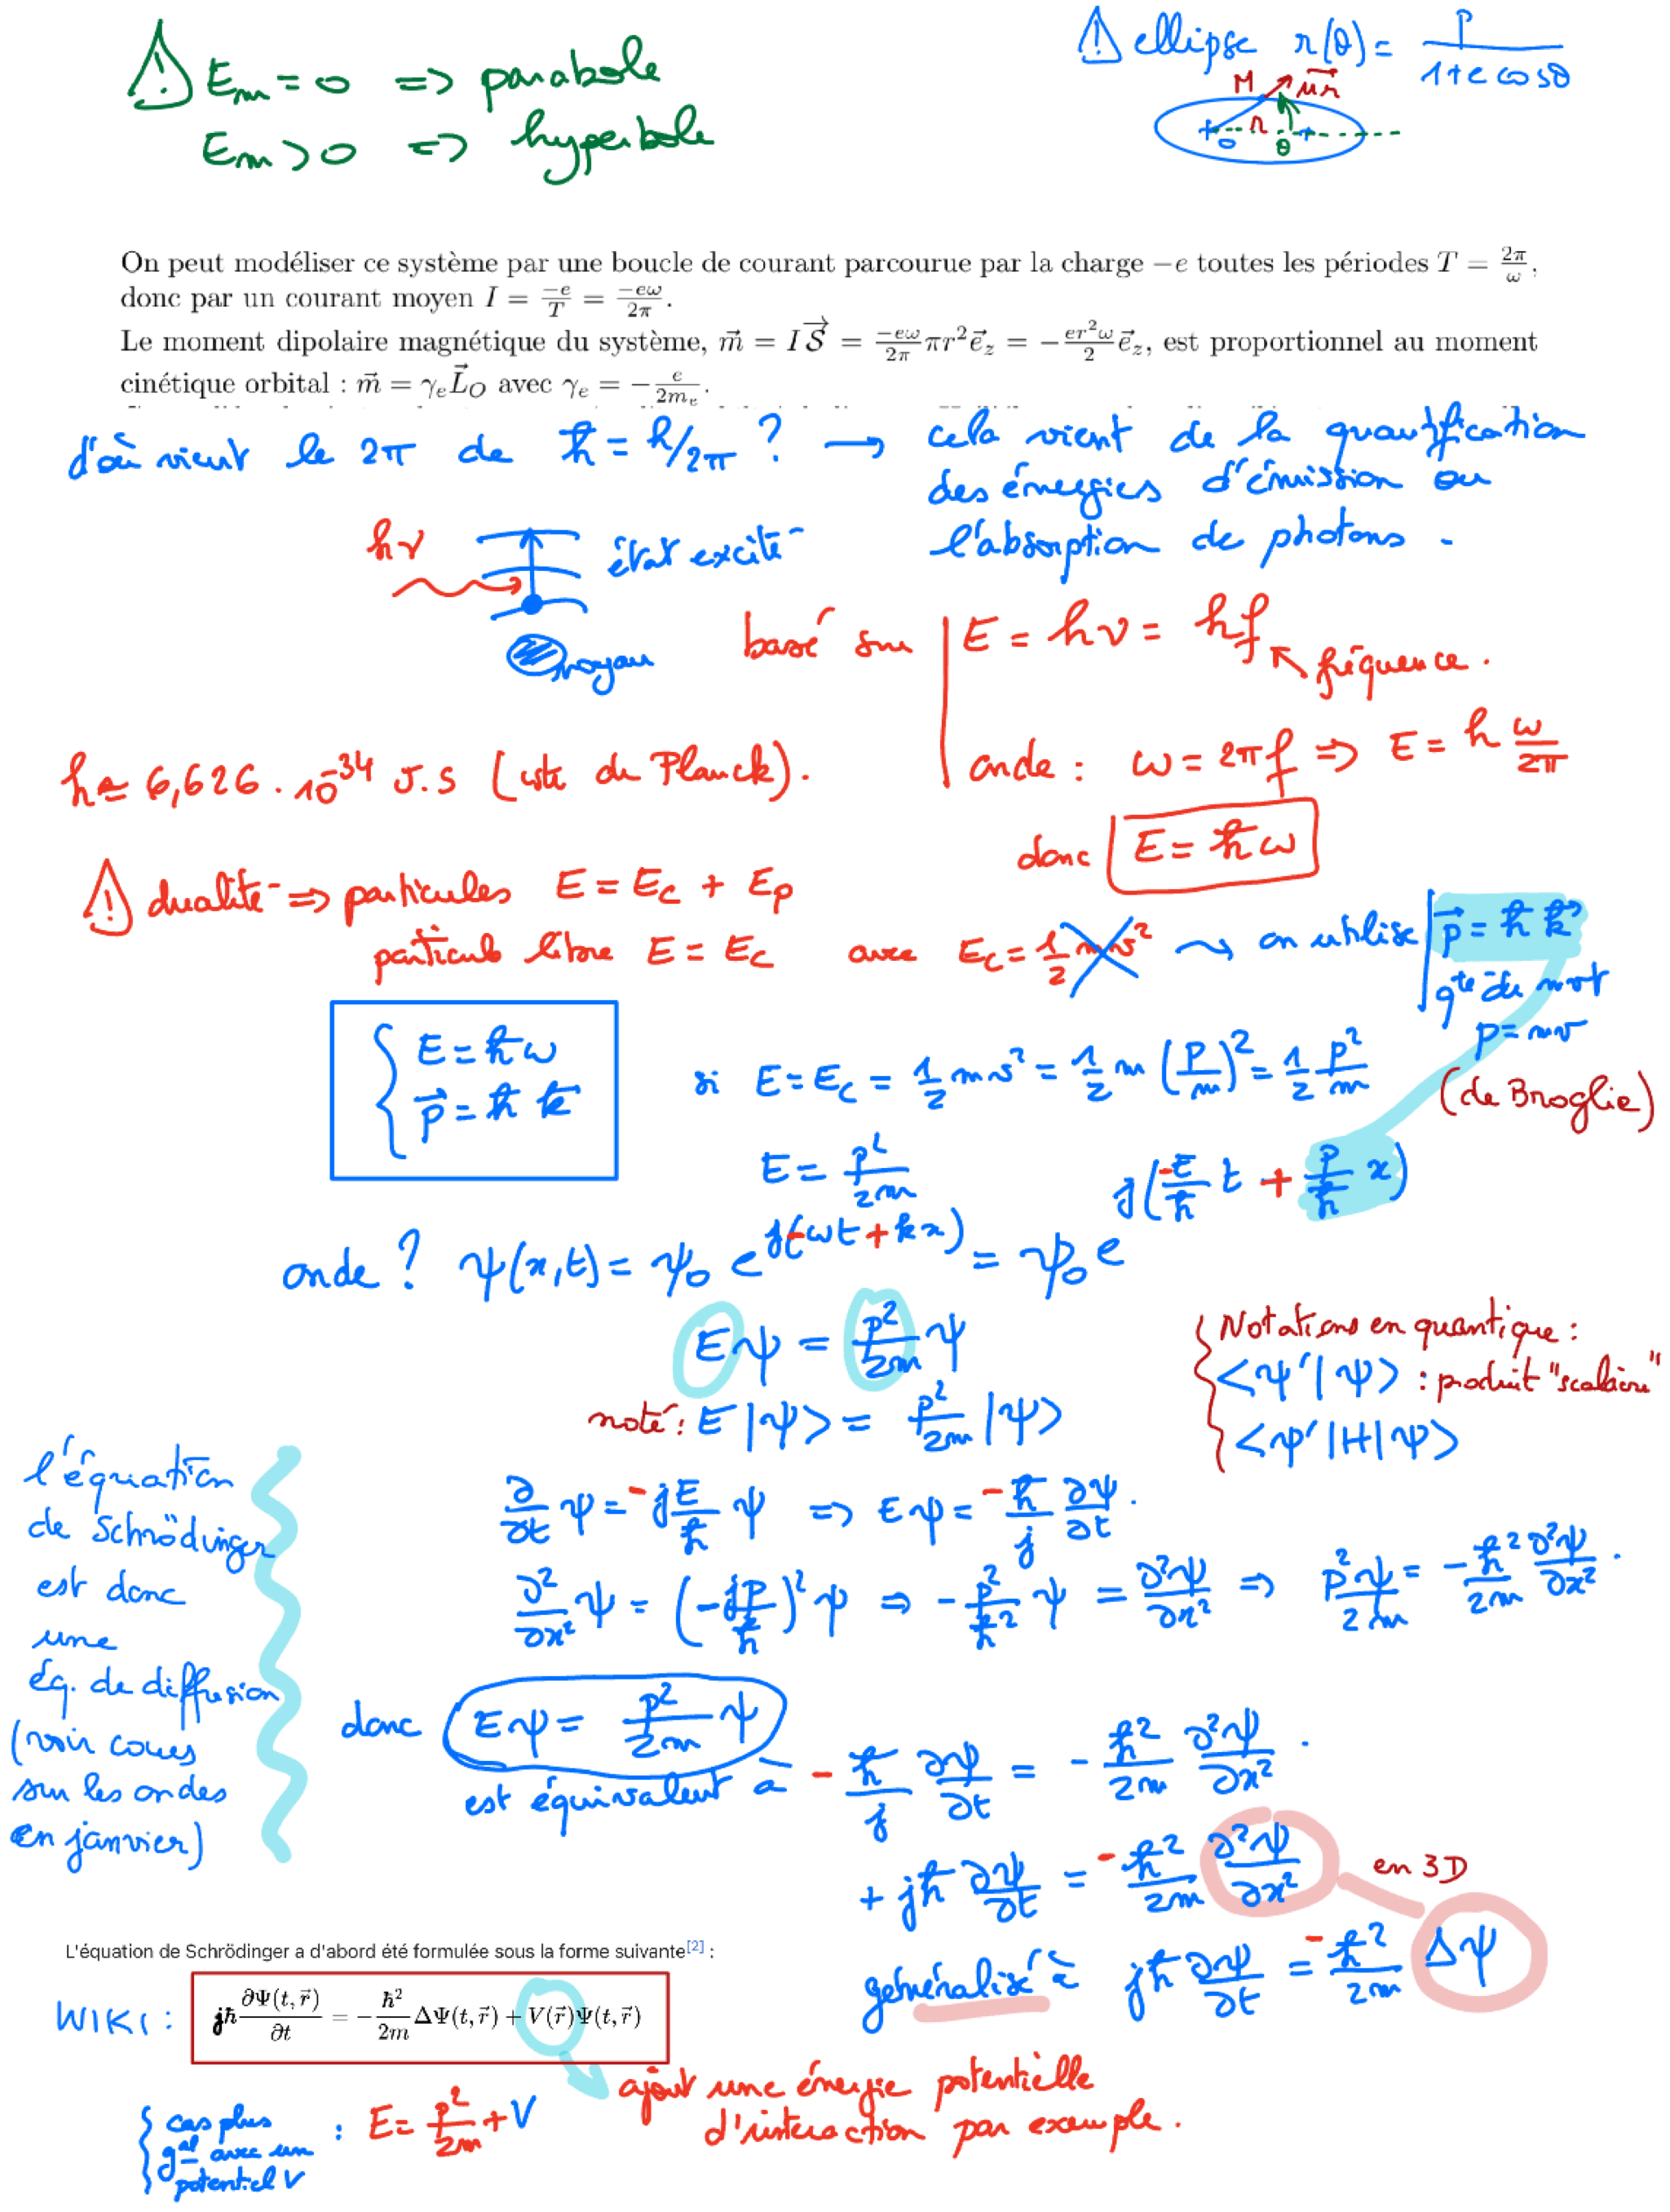 ⚠ Em = 0 => parabole
Em > 0 => hyperbole
⚠ ellipse r(θ) = p / (1 + e cos θ)
M u⃗r
r
O θ
On peut modéliser ce système par une boucle de courant parcourue par la charge −e toutes les périodes T = 2π/ω,
donc par un courant moyen I = −e/T = −eω/2π.
Le moment dipolaire magnétique du système, m⃗ = I𝒮⃗ = (−eω/2π) πr² e⃗z = −(er²ω/2) e⃗z, est proportionnel au moment
cinétique orbital : m⃗ = γe L⃗O avec γe = −e/(2me).
d'où vient le 2π de ħ = h/2π ? → cela vient de la quantification
des énergies d'émission ou
l'absorption de photons.
hν
état excité
noyau
basé sur | E = hν = hf
↖ fréquence.
onde : ω = 2πf => E = h ω/2π
h ≃ 6,626 . 10^-34 J.s (cste de Planck).
donc E = ħω
⚠ dualité => particules E = Ec + Ep
particule libre E = Ec avec Ec = 1/2 mv² ⇝ on utilise | p⃗ = ħ k⃗
qté de mvt
p = mv
(de Broglie)
{ E = ħω
p⃗ = ħ k⃗
si E = Ec = 1/2 mv² = 1/2 m (p/m)² = 1/2 p²/m
E = p²/2m
onde ? ψ(x,t) = ψ0 e^j(-ωt + kx) = ψ0 e^j(-E/ħ t + p/ħ x)
Eψ = p²/2m ψ
noté : E |ψ> = p²/2m |ψ>
{ Notations en quantique :
<ψ'|ψ> : produit "scalaire"
<ψ'|H|ψ>
∂/∂t ψ = -jE/ħ ψ => Eψ = -ħ/j ∂ψ/∂t.
∂²/∂x² ψ = (-jp/ħ)² ψ => -p²/ħ² ψ = ∂²ψ/∂x² => p²ψ/2m = -ħ²/2m ∂²ψ/∂x².
l'équation
de Schrödinger
est donc
une
éq. de diffusion
(voir cours
sur les ondes
en janvier)
donc Eψ = p²/2m ψ
est équivalent à - ħ/j ∂ψ/∂t = - ħ²/2m ∂²ψ/∂x².
+ jħ ∂ψ/∂t = - ħ²/2m ∂²ψ/∂x²
en 3D
généralisé à jħ ∂ψ/∂t = - ħ²/2m Δψ
L'équation de Schrödinger a d'abord été formulée sous la forme suivante[2] :
WIKI : jħ ∂Ψ(t, r⃗)/∂t = −ħ²/2m ΔΨ(t, r⃗) + V(r⃗)Ψ(t, r⃗)
ajout une énergie potentielle
d'interaction par exemple.
{ cas plus
gal avec un
potentiel V : E = p²/2m + V